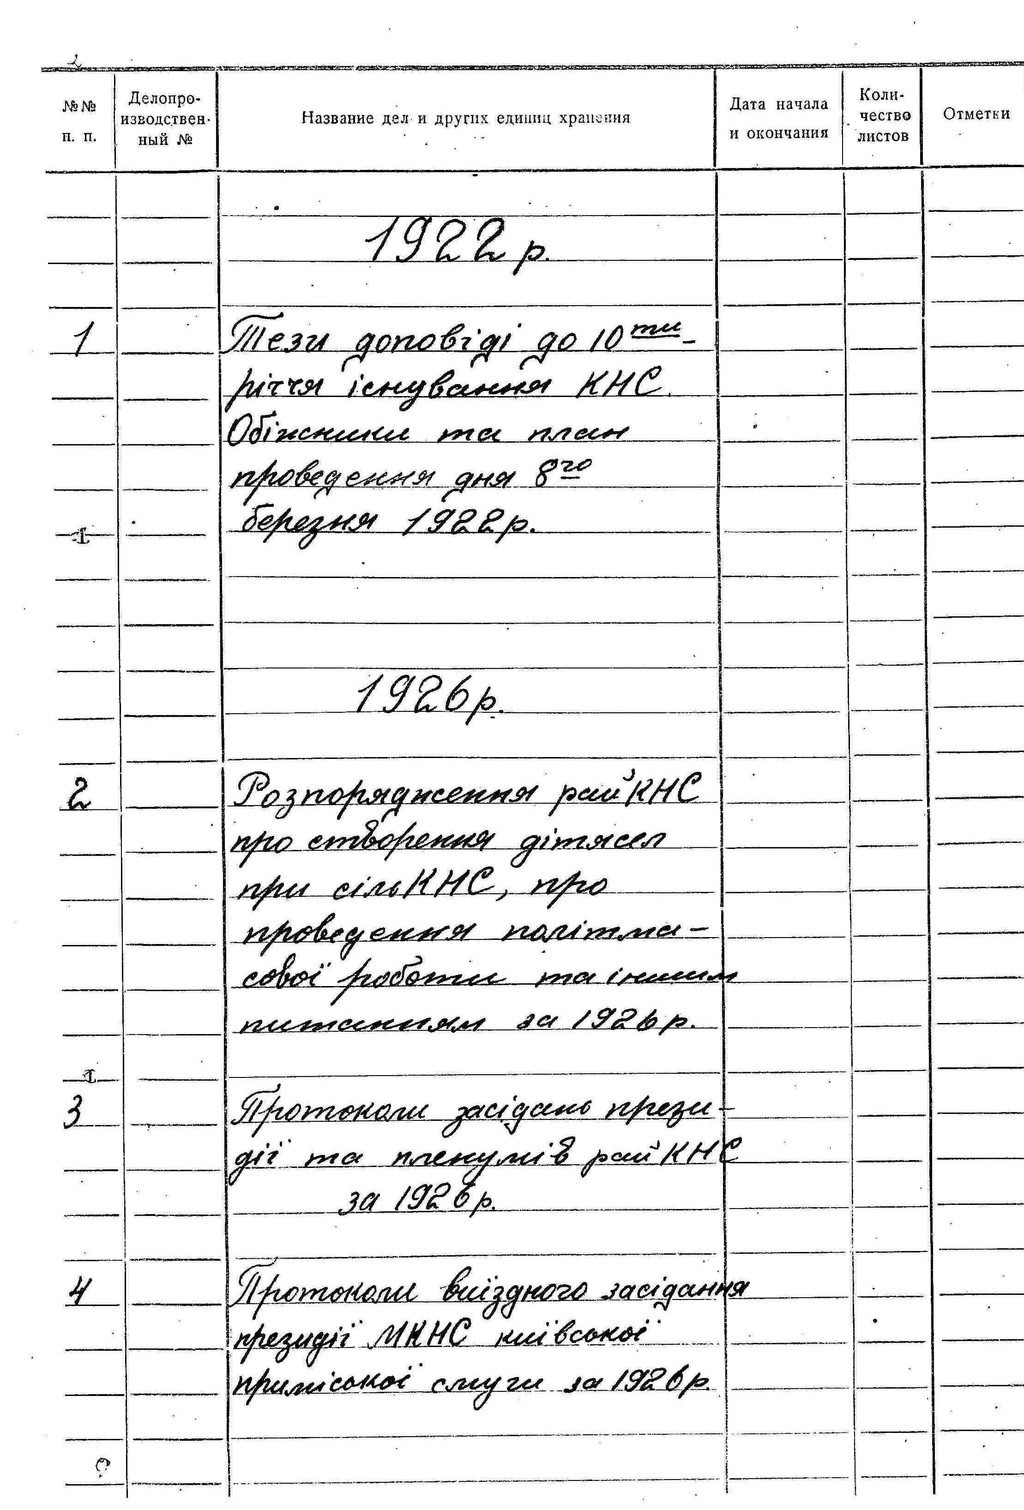 2
№№ п. п.
Делопро-
изводствен-
ный №
Название дел и других единиц хранения
Дата начала
и окончания
Коли-
чество
листов
Отметки
1922 р.
1
Тези доповіді до 10ти-
річчя існування КНС.
Обіжники та план
проведення дня 8го
березня 1922 р.
1926 р.
2
Розпорядження райКНС
про створення дітясел
при сільКНС, про
проведення політма-
сової роботи та іншим
питанням за 1926 р.
3
Протоколи засідань прези-
дії та пленумів райКНС
за 1926 р.
4
Протоколи виїздного засідання
президії МКНС київської
приміської смуги за 1926 р.